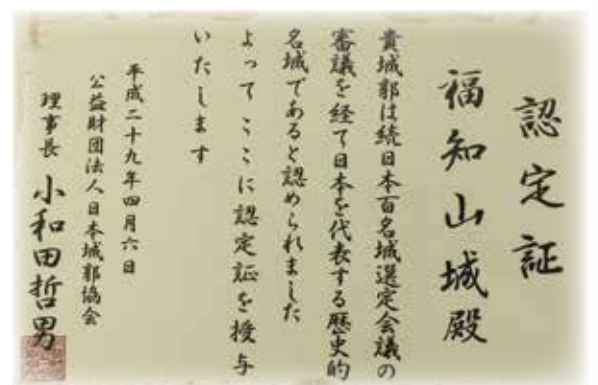 認定証
福知山城殿
貴城郭は続日本百名城選定会議の
審議を経て日本を代表する歴史的
名城であると認められました
よってここに認定証を授与
いたします
平成二十九年四月六日
公益財団法人日本城郭協会
理事長 小和田哲男